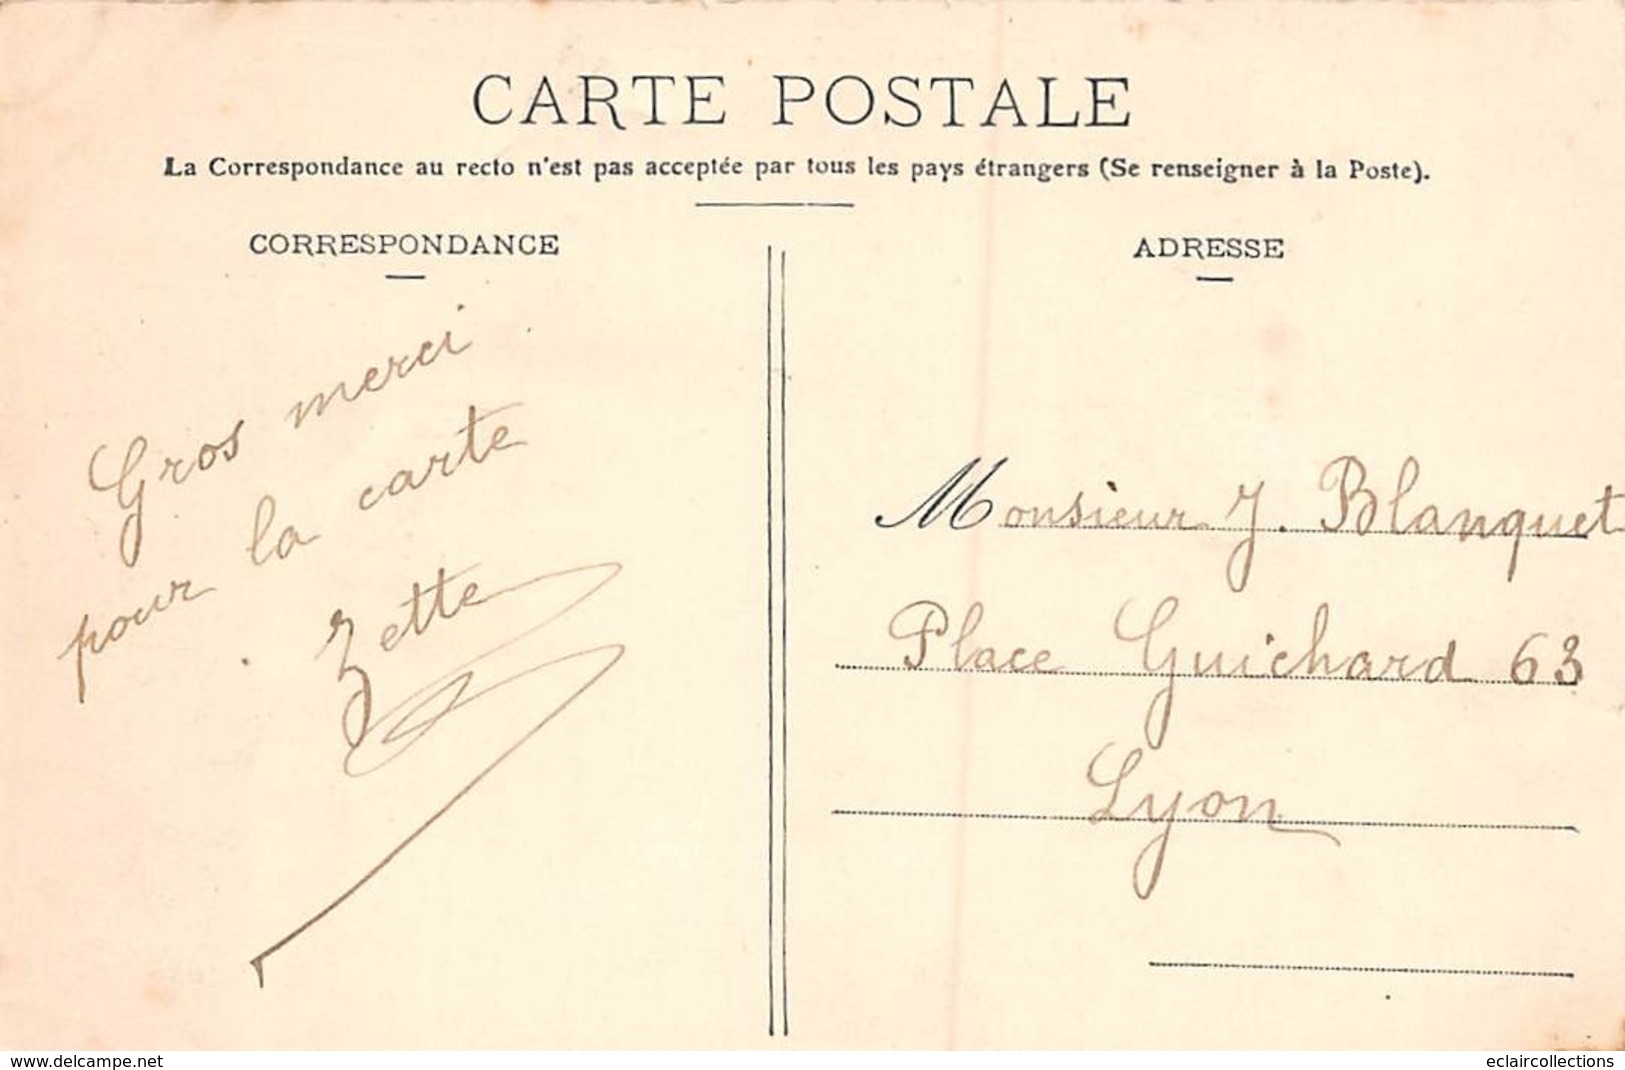 CARTE POSTALE
La Correspondance au recto n'est pas acceptée par tous les pays étrangers (Se renseigner à la Poste).
CORRESPONDANCE
Gros merci
pour la carte
Zette
ADRESSE
Monsieur J. Blanquet
Place Guichard 63
Lyon
www.delcampe.net
eclaircollections